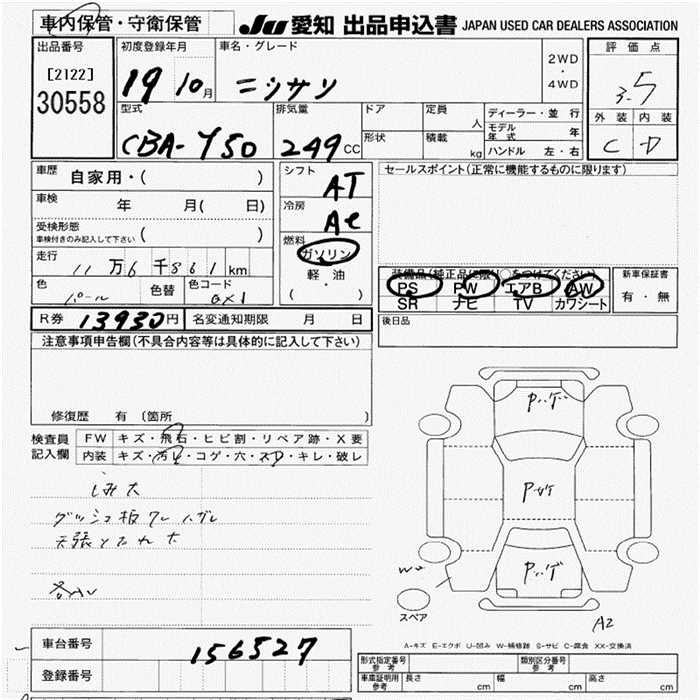 車内保管・守衛保管
JU 愛知 出品申込書 JAPAN USED CAR DEALERS ASSOCIATION
出品番号
[2122]
30558
初度登録年月
19 10月
車名・グレード
ニッサン
2WD
・
4WD
評価点
3.5
外装 内装
C D
型式
CBA-Y50
排気量
249 CC
ドア
形状
定員 人
積載 kg
ディーラー・並行
モデル年式 年
ハンドル 左・右
車歴 自家用・( )
車検 年 月( 日)
受検形態
車検付きのみ記入して下さい ( )
走行 11万6千861km
色 パール 色替 色コード QX1
シフト AT
冷房 AC
燃料
ガソリン
軽・油
( ・ )
セールスポイント(正常に機能するものに限ります)
装備品(純正品に限り○をつけてください)
PS PW エアB AW
SR ナビ TV カワシート
新車保証書
有・無
R券 13930円 名変通知期限 月 日
後日品
注意事項申告欄(不具合内容等は具体的に記入して下さい)
修復歴 有 〔箇所 〕
検査員
記入欄
FW キズ・飛石・ヒビ割・リペア跡・X要
内装 キズ・汚レ・コゲ・穴・スレ・キレ・破レ
シミ大
ダッシュ板ワレ ハガレ
天張りたれ大
各AU
Pハゲ
Pハゲ
Pハゲ
W2
スペア
A2
A-キズ E-エクボ U-凹み W-補修跡 S-サビ C-腐食 XX-交換済
車台番号 156527
登録番号
形式指定番号
参考
類別区分番号
参考
車庫証明用
参考
長さ cm 幅 cm 高さ cm